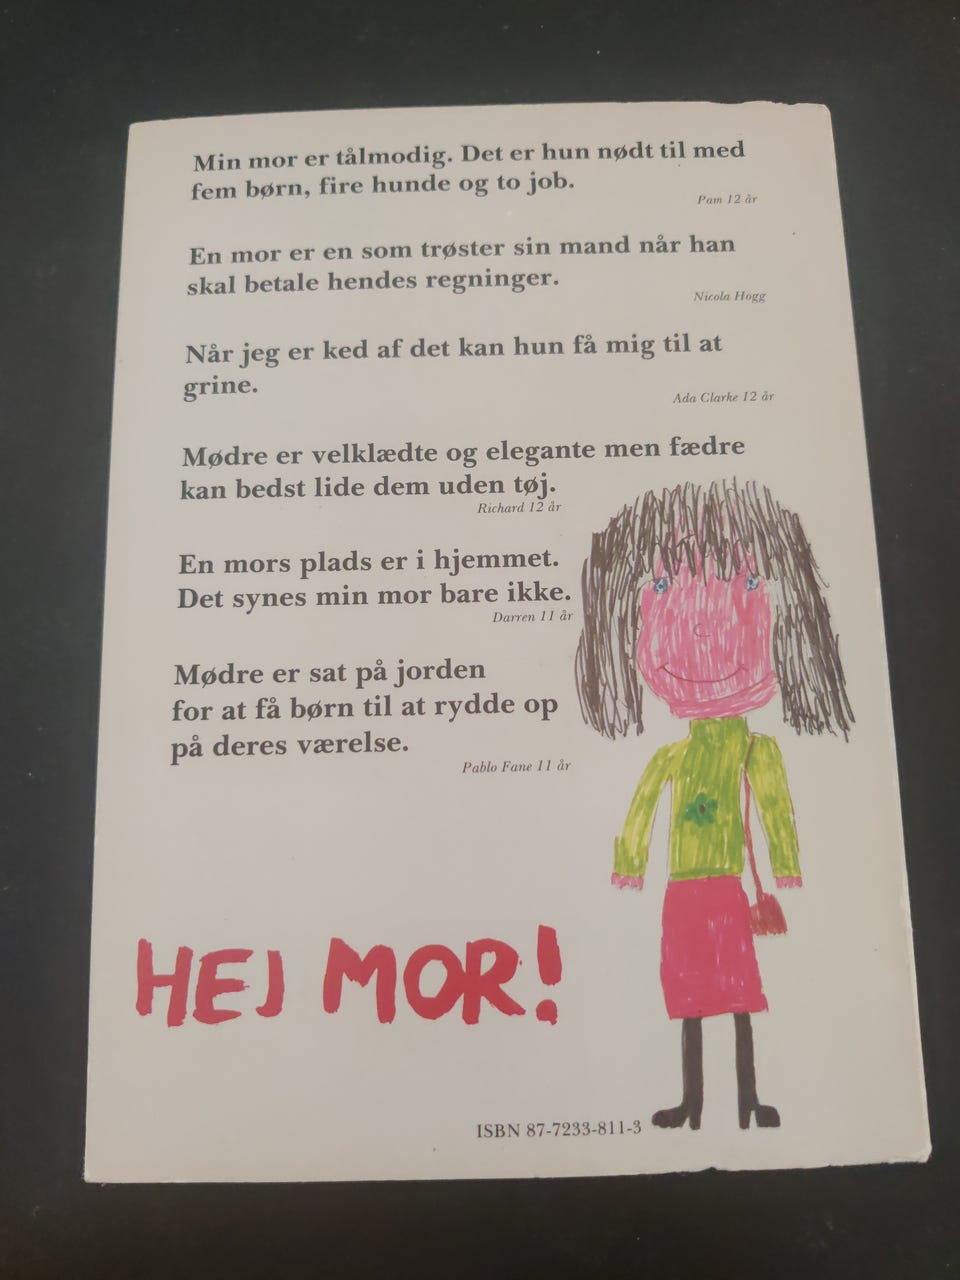 Min mor er tålmodig. Det er hun nødt til med
fem børn, fire hunde og to job.
Pam 12 år
En mor er en som trøster sin mand når han
skal betale hendes regninger.
Nicola Hogg
Når jeg er ked af det kan hun få mig til at
grine.
Ada Clarke 12 år
Mødre er velklædte og elegante men fædre
kan bedst lide dem uden tøj.
Richard 12 år
En mors plads er i hjemmet.
Det synes min mor bare ikke.
Darren 11 år
Mødre er sat på jorden
for at få børn til at rydde op
på deres værelse.
Pablo Fane 11 år
HEJ MOR!
ISBN 87-7233-811-3